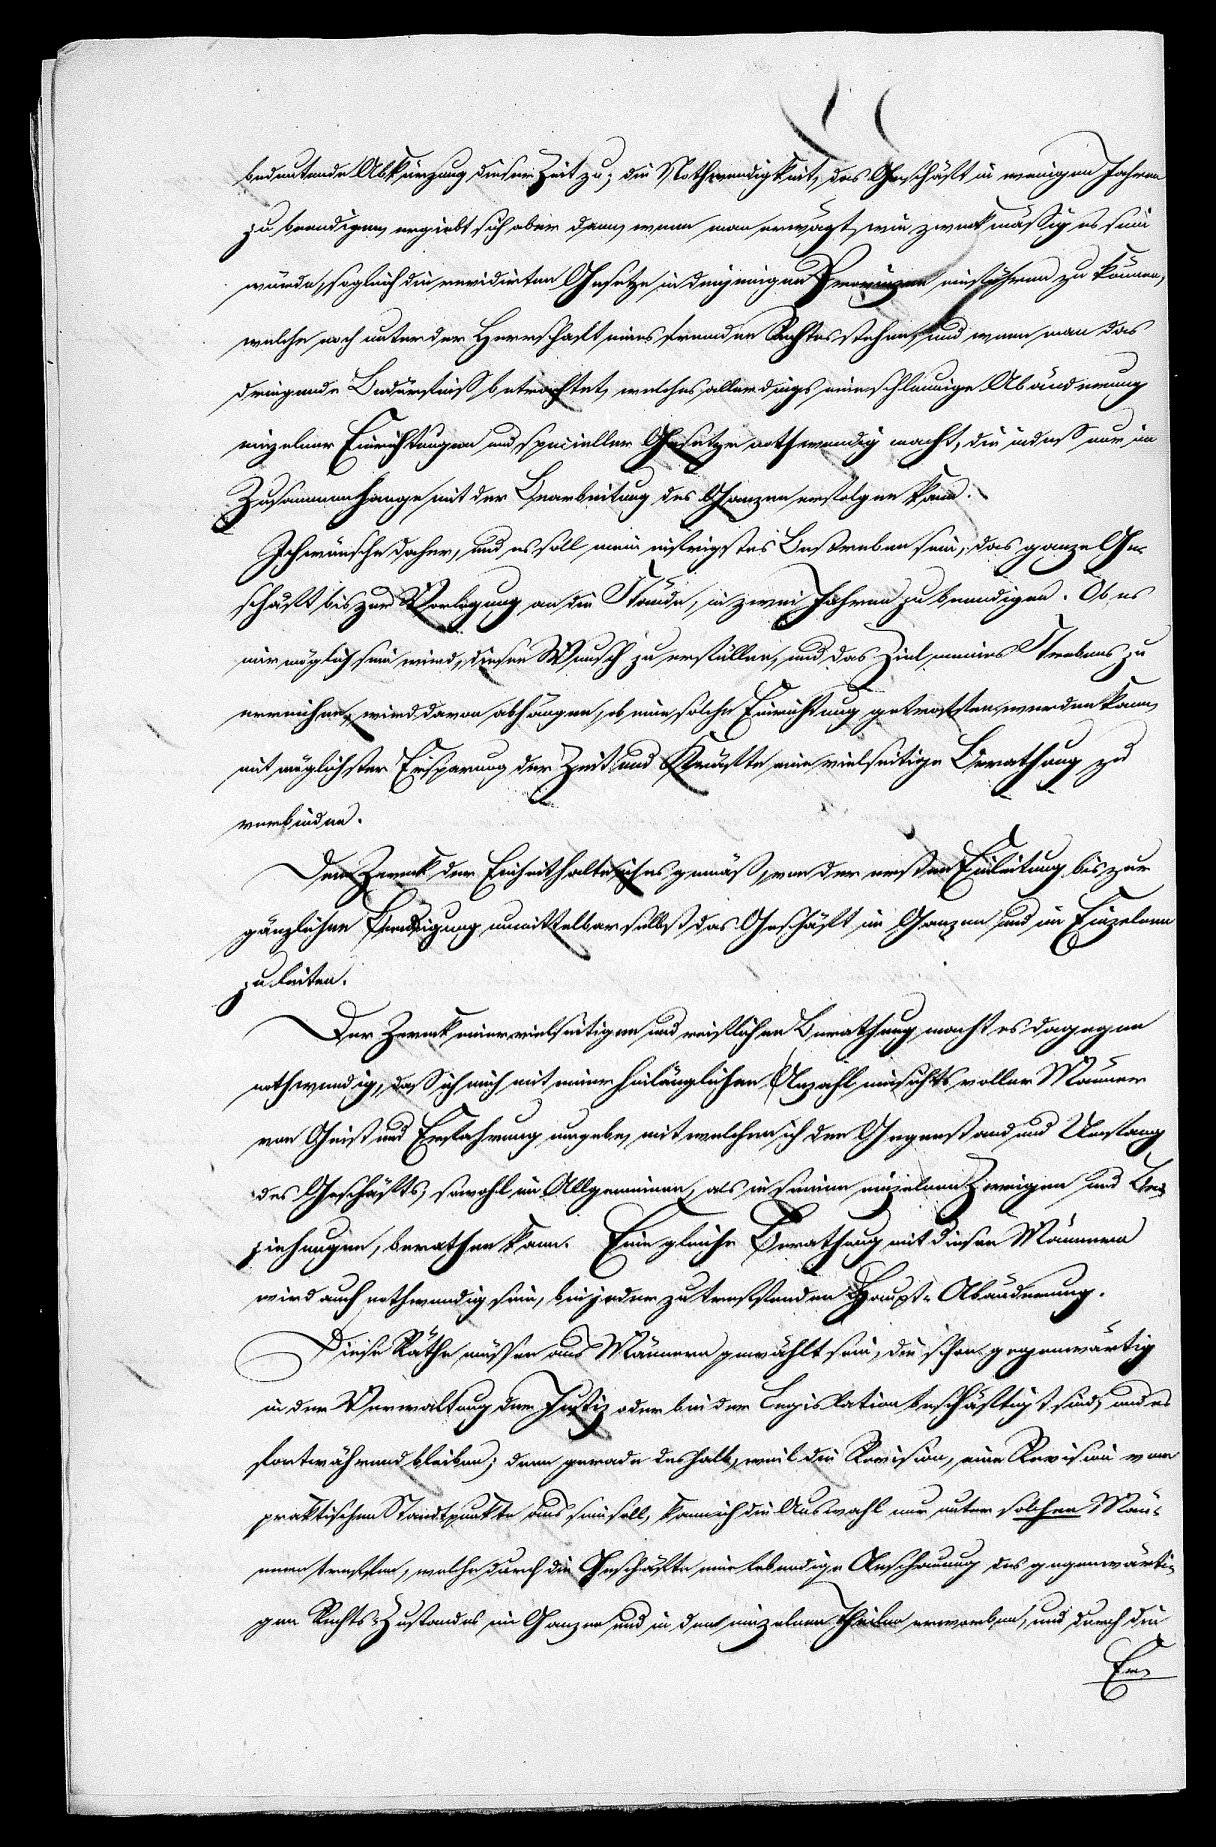 bedeutende Abkürzung dieser Zeit zu; die Nothwendigkeit, das Geschäft in wenigen Jahren
zu beendigen, ergiebt sich aber dann, wenn man erwägt, wie zweckmäßig es sein
würde, sogleich die revidirten Gesetze in denjenigen Provinzen einführen zu können,
welche noch unter der Herrschaft eines fremden Rechtes stehen, und wenn man das
dringende Bedürfniß betrachtet, welches allerdings eine schleunige Abänderung
einzelner Einrichtungen und specieller Gesetze nothwendig macht, die indeß nur im
Zusammenhange mit der Bearbeitung des Ganzen erfolgen kann.
Ich wünsche daher, und es soll mein eifrigstes Bestreben sein, das ganze Ge-
schäft bis zur Vorlegung an die Stände, in zwei Jahren zu beendigen. Ob es
mir möglich sein wird, diesen Wunsch zu erfüllen, und das Ziel meines Strebens zu
erreichen, wird davon abhängen, ob eine solche Einrichtung getroffen werden kann,
mit möglichster Ersparung der Zeit und Kräfte eine vielseitige Berathung zu
verbinden.
Dem Zweck der Einheit halte ich es gemäß, von der ersten Einleitung bis zur
gänzlichen Beendigung unmittelbar selbst das Geschäft im Ganzen und im Einzelnen
zu leiten.
Der Zweck einer vielseitigen und reiflichen Berathung macht es dagegen
nothwendig, daß ich mich mit einer hinlänglichen Anzahl einsichtsvoller Männer
von Geist und Erfahrung umgebe, mit welchen ich den Gegenstand und Umfang
des Geschäfts, sowohl im Allgemeinen, als in seinen einzelnen Zweigen und Be-
ziehungen, berathen kann. Eine gleiche Berathung mit diesen Männern
wird auch nothwendig sein, bei jeder zu treffenden Haupt-Abänderung.
Diese Räthe müssen aus Männern gewählt sein, die schon gegenwärtig
in der Verwaltung der Justiz oder bei der Legislation beschäftigt sind, und es
fortwährend bleiben; denn gerade deshalb, weil die Revision, eine Revision vom
praktischen Standtpunkte aus sein soll, kann ich die Auswahl nur unter solchen Män-
nern treffen, welche durch die Geschäfte eine lebendige Anschauung des gegenwärti-
gen Rechts-Zustandes im Ganzen und in den einzelnen Theilen erworben, und durch die
Er-